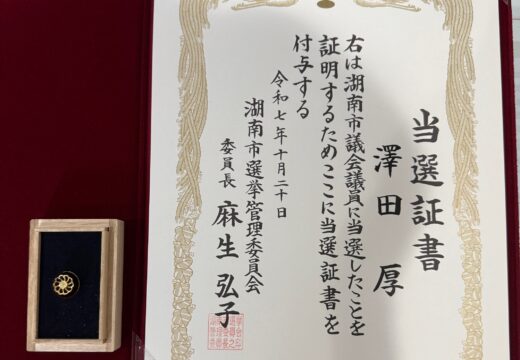 当選証書
澤田 厚
右は湖南市議会議員に当選したことを
証明するためここに当選証書を
付与する
令和七年十月二十日
湖南市選挙管理委員会
委員長 麻生 弘子